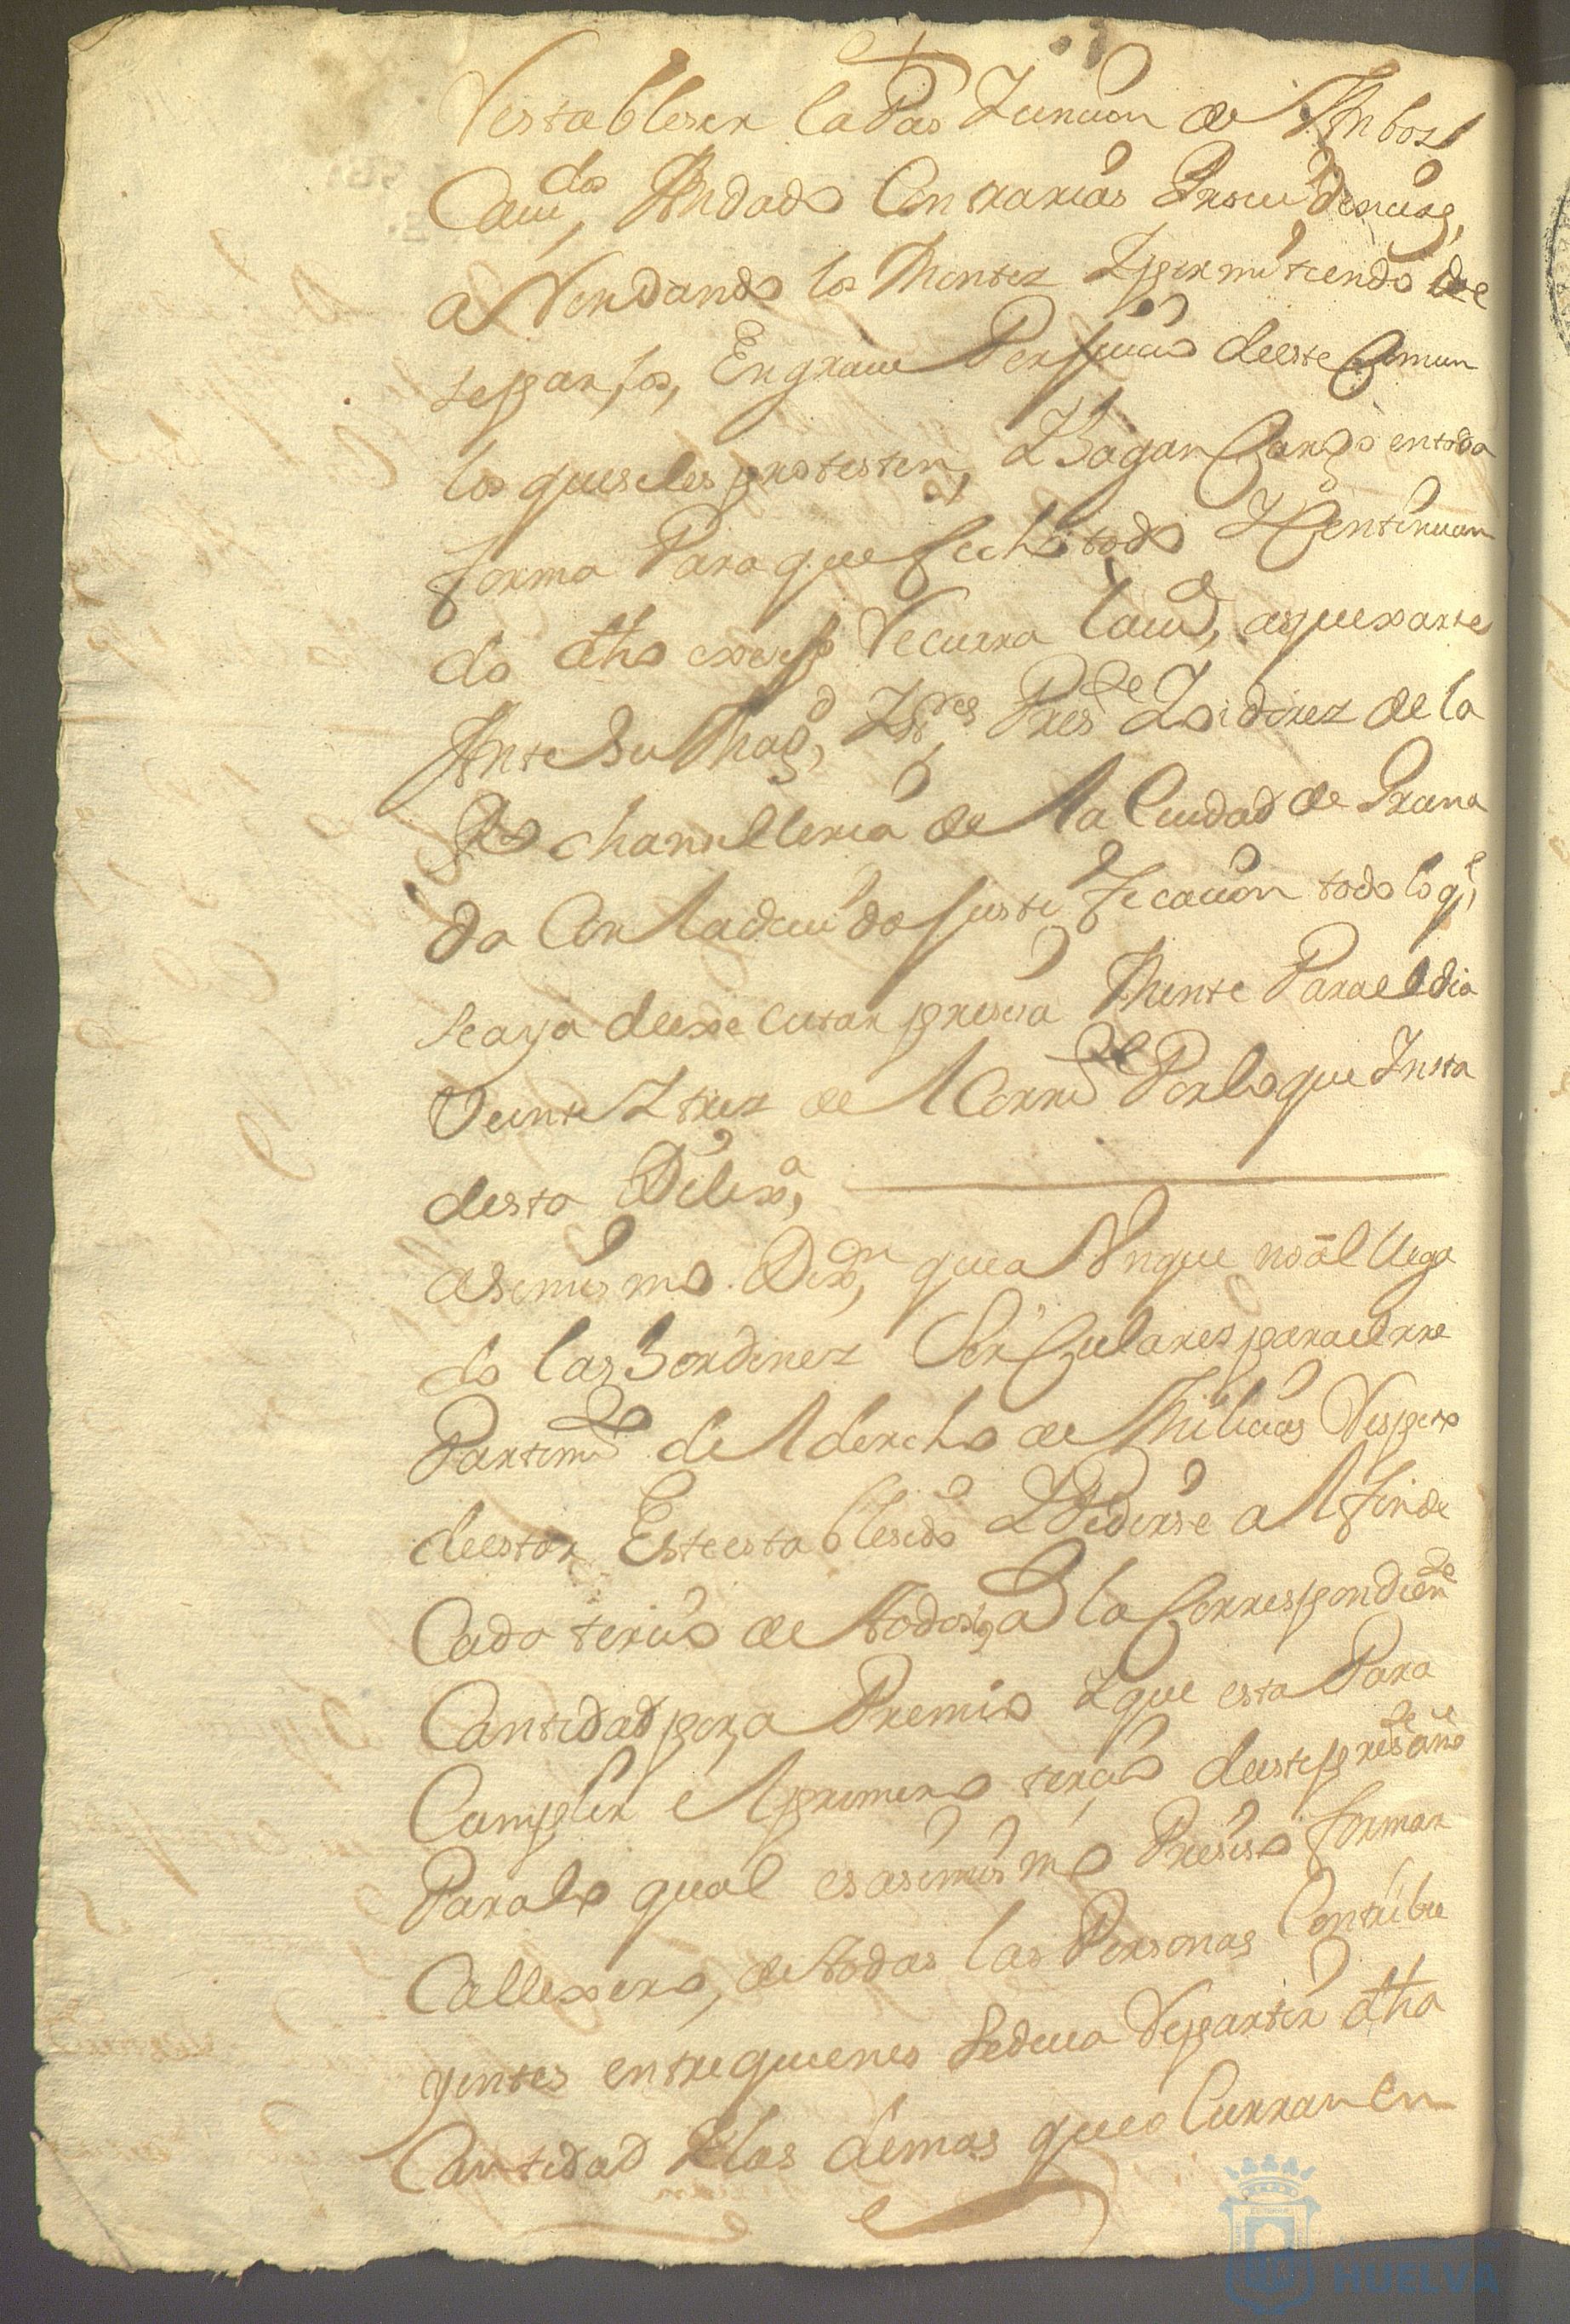 Vestableser la Pas Zunuon de Ambos
Cauidos, An dado Contrarias Prouidencias,
a Rendando los Montes Zpermitiendo de
separ los, En graue Perjuicio deeste Comun
los que seles protesten, Z Hagan Cargo entoda
forma Para que fecho todo Zcontinuan
do dho exersso Vecurra lauid, aquexarse
Ante Su Magd, Zsres Presde Zoidorez de la
Rl chansilleria de la Ciudad de Grana
da Con la deuida Justificacion todo lo qe
se aya deexecutar presisa Mente Para el dia
Veinte Z trez de el Corrte Por lo que Insta
desta Dilixa,
asimismo Dixon, quea Vnque no āl llega
do las Hordenez Circulares para el rre
Partimto de el derecho de Milicias Respecto
deestar Este establesido Z Pedirse al fin de
Cada tercio de todos la Correspondiente
Cantidad por a Premio Zque esta Para
Cumplir el primero tercio deeste presente año
Para lo qual es asimismo Presiso formar
Callexero, de todas las Personas Contribu
yentes entre quienes sedeua Repartir dha
Cantidad Z las demas que o Curran en
HUELVA